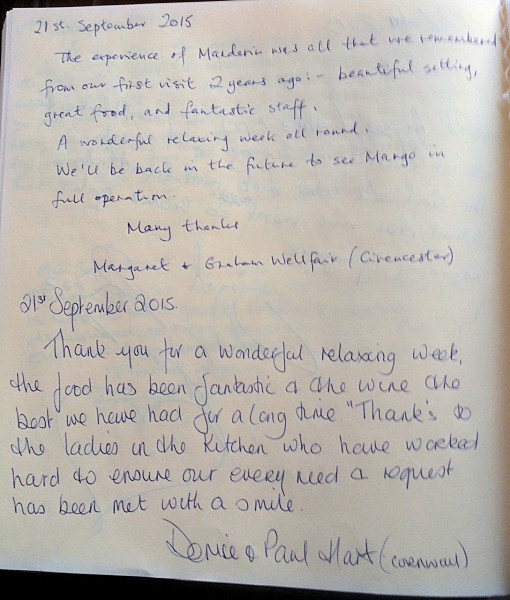 21st. September 2015
The experience of Mandarin was all that we remembered
from our first visit 2 years ago:- beautiful setting,
great food, and fantastic staff.
A wonderful relaxing week all round.
We'll be back in the future to see Mango in
full operation.
Many thanks
Margaret & Graham Wellfair (Cirencester)
21st September 2015.
Thank you for a wonderful relaxing week,
the food has been fantastic & the wine the
best we have had for a long time "Thank's to
the ladies in the kitchen who have worked
hard to ensure our every need & request
has been met with a smile.
Denise & Paul Hart (cornwall)